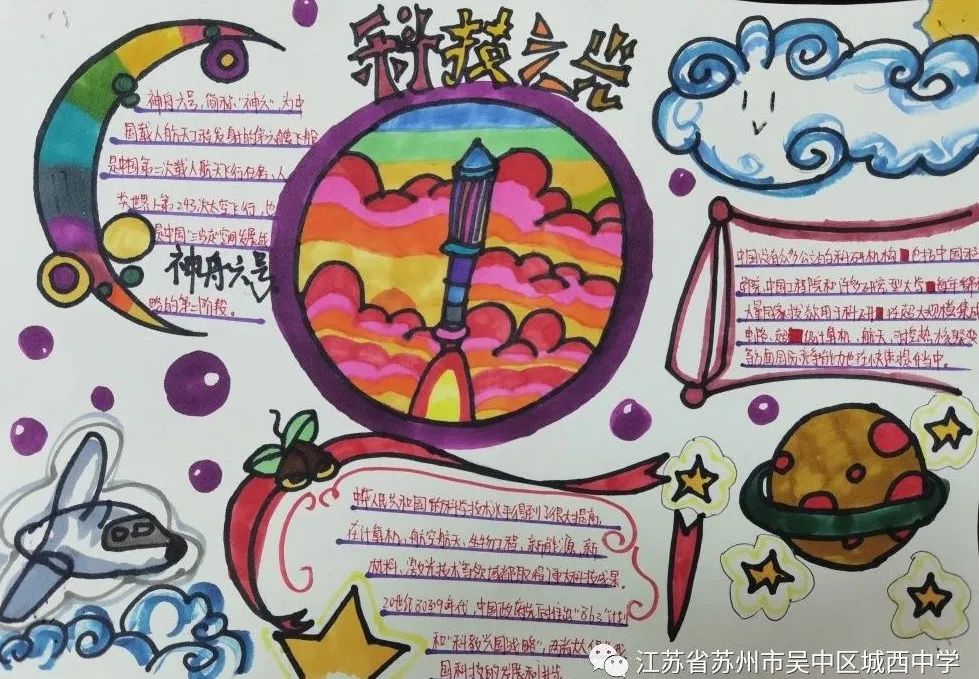 科技之光
神舟六号,简称“神六”,为中
国载人航天工程发射的第六艘飞船
是中国第二次载人航天飞行任务,人
类世界上第243次太空飞行,也
是中国“三步走”空间发展战
略的第二阶段。
神舟六号
中国设有众多公立的科研机构
中国工程院和许多研究型大学
大量国家投放用于科研
电路、计算机、航天、可控热核聚变
等方面国际竞争能力也在快速提升当中。
中华人民共和国的科学技术水平得到了很大提高,
在计算机、航空航天、生物工程、新能源、新
材料、激光技术等领域都取得了重大科技成果。
20世纪80年代,中国政府先后推出“863”计划
和“科教兴国战略”,
国科技的发展和进步
江苏省苏州市吴中区城西中学